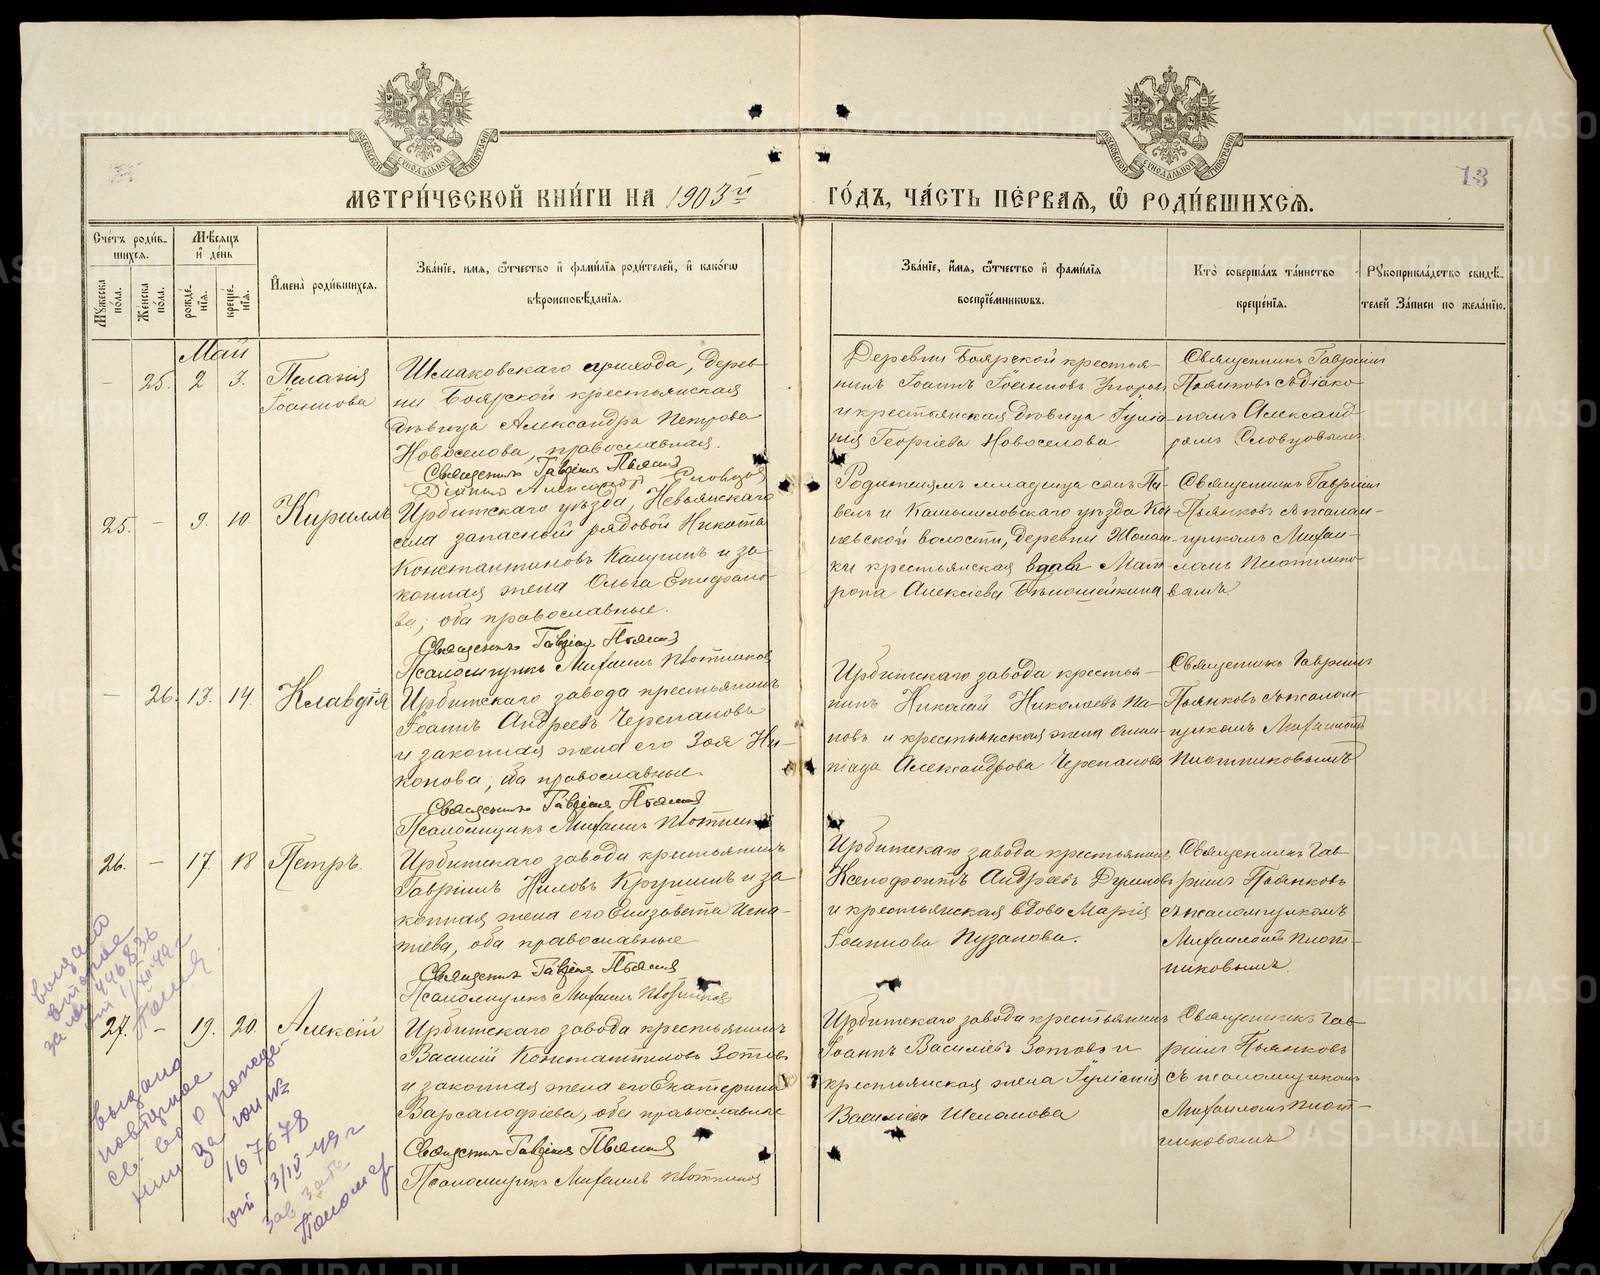 МЕТРИ́ЧЕСКОЙ КНИ́ГИ НА 1903й ГО́ДЪ, ЧА́СТЬ ПЕ́РВАѦ, Ѡ РОДИ́ВШИХСѦ.
13
Сче́тъ роди́в-
шихсѧ.
Мꙋ́жеска по́ла.
Же́нска по́ла.
Мѣ́сѧцъ и де́нь
рожде́нїѧ.
креще́нїѧ.
И҆мена̀ роди́вшихсѧ.
Зва́нїе, имѧ, ѿтчество и фами́лїѧ роди́телей, и како́гѡ
вѣроисповѣ́данїѧ.
Зва́нїе, и́мѧ, ѿтчество и фами́лїѧ
воспрїе́мникѡвъ.
Кто̀ соверша́лъ та́инство
креще́нїѧ.
Рꙋкоприкла́дство свидѣ́-
телей За́писи по жела́нїю.
Май
– 25. 2 3.
Пелагія
Іоаннова
Шмаковскаго прихода, дерев-
ни Боярской крестьянская
дѣвица Александра Петрова
Новоселова, православная.
Священникъ Гавріилъ Пьянк
Діаконъ Александръ Словцовъ
Деревни Боярской крестья-
нинъ Іоаннъ Іоанновъ
и крестьянская дѣвица Іуліа-
нія Георгіева Новоселова.
Священникъ Гавріилъ
Пьянковъ съ діако-
номъ Александ-
ромъ Словцовымъ.
25. – 9. 10.
Кириллъ
Ирбитскаго уѣзда, Невьянскаго
села запасный рядовой Никита
Константиновъ Калугинъ и за-
конная жена Ольга Епифано-
ва, оба православные.
Священникъ Гавріилъ Пьянк
Псаломщикъ Михаилъ Плотниковъ
Родителямъ младенца сынъ Па-
велъ и Камышловскаго уѣзда
невской волости, деревни
ки крестьянская вдова Мат-
рона Алексіева Бѣлошейкина
Священникъ Гавріилъ
Пьянковъ съ псалом-
щикомъ Михаи-
ломъ Плотнико-
вымъ
– 26. 13. 14.
Клавдія
Ирбитскаго завода крестьянинъ
Іоаннъ Андреевъ Черепановъ
и законная жена его Зоя Ни-
конова, оба православные.
Священникъ Гавріилъ Пьянк
Псаломщикъ Михаилъ Плотник
Ирбитскаго завода крестья-
нинъ Николай Николаевъ Па-
новъ и крестьянская жена Олим-
піада Александрова Черепанова
Священникъ Гавріилъ
Пьянковъ съ псалом-
щикомъ Михаиломъ
Плотниковымъ
26. – 17. 18
Петръ.
Ирбитскаго завода крестьянинъ
Гавріилъ Ниловъ Кругинъ и за-
конная жена его Елизавета Игна-
тіева, оба православные
Священникъ Гавріилъ Пьянк
Псаломщикъ Михаилъ Плотников
Ирбитскаго завода крестьянинъ
Ксенофонтъ Андреевъ
и крестьянская вдова Марія
Іоаннова Пузанова.
Священникъ Гав-
ріилъ Пьянковъ
съ псаломщикомъ
Михаиломъ Плот-
никовымъ.
выдано
второе
за № 446836
от 1/XII 49 г
27. – 19. 20.
Алексій
Ирбитскаго завода крестьянинъ
Василій Константиновъ Зотовъ
и законная жена его Екатерина
Варсанофіева, оба православные
Священникъ Гавріилъ Пьянк
Псаломщикъ Михаилъ Плотников
Ирбитскаго завода крестьянинъ
Іоаннъ Василіевъ Зотовъ и
крестьянская жена Іуліанія
Василіева Шелапова
Священникъ Гав-
ріилъ Пьянковъ
съ псаломщикомъ
Михаиломъ Плот-
никовымъ
выдано
повторное
св. во о рожде-
нии за юи №
167678
от 13/IV
зав загс
METRIKI.GASO-URAL.RU